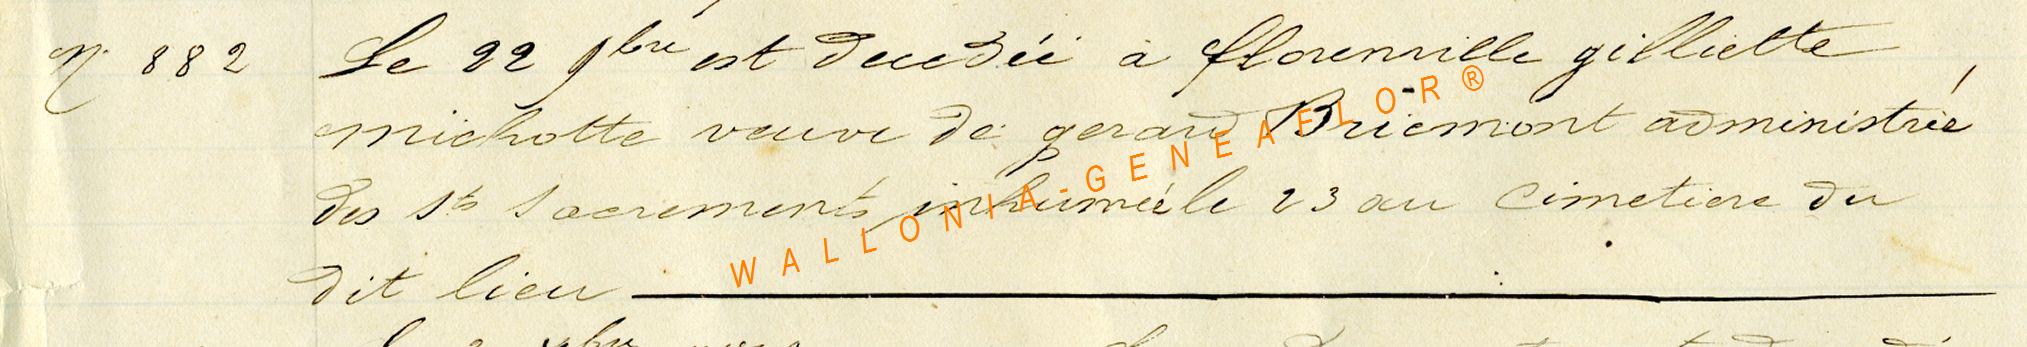 N° 882 Le 22 9bre est decedée à florenville gilliette
michotte veuve de gerard Briemont administrée
des sts sacrements inhumée le 23 au cimetiere du
dit lieu
WALLONIA-GENEAFLOR®